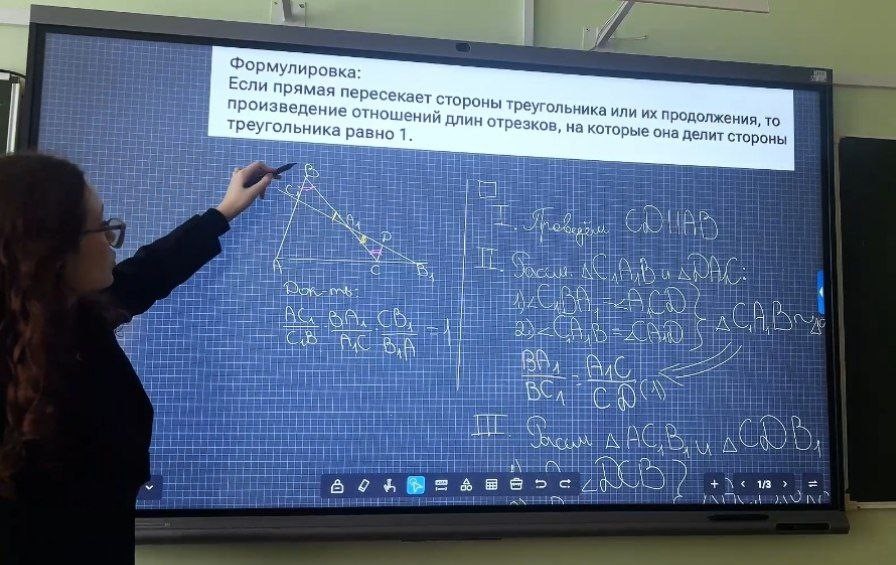 Формулировка:
Если прямая пересекает стороны треугольника или их продолжения, то
произведение отношений длин отрезков, на которые она делит стороны
треугольника равно 1.
B
C₁
A₁
D
A
C
B₁
Док-ть:
AC₁/C₁B · BA₁/A₁C · CB₁/B₁A = 1
I. Проведём CD||AB
II. Рассм. △C₁A₁B и △DA₁C:
1) ∠C₁BA₁ = ∠A₁CD
2) ∠C₁A₁B = ∠CA₁D
△C₁A₁B ~
BA₁/BC₁ = A₁C/CD (1)
III. Рассм △AC₁B₁ и △CDB₁
∠DCB
1/3